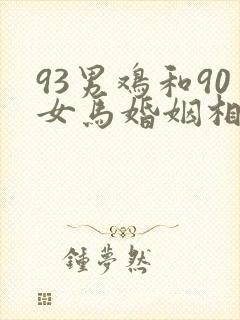 93男鸡和90
女马婚姻相
鍾夢然